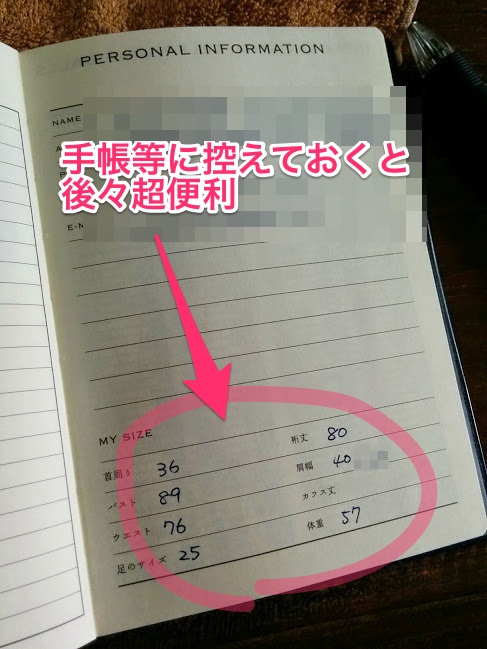 PERSONAL INFORMATION
NAME
手帳等に控えておくと
後々超便利
E-M
MY SIZE
首周り 36
裄丈 80
バスト 89
肩幅 40
ウエスト 76
カフス丈
足のサイズ 25
体重 57